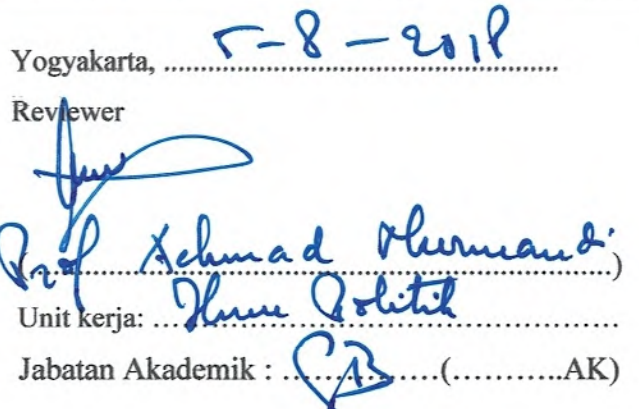 Yogyakarta, 5-8-2018
Reviewer
Prof Achmad Nurmandi)
Unit kerja: Ilmu Politik
Jabatan Akademik : GB (...........AK)